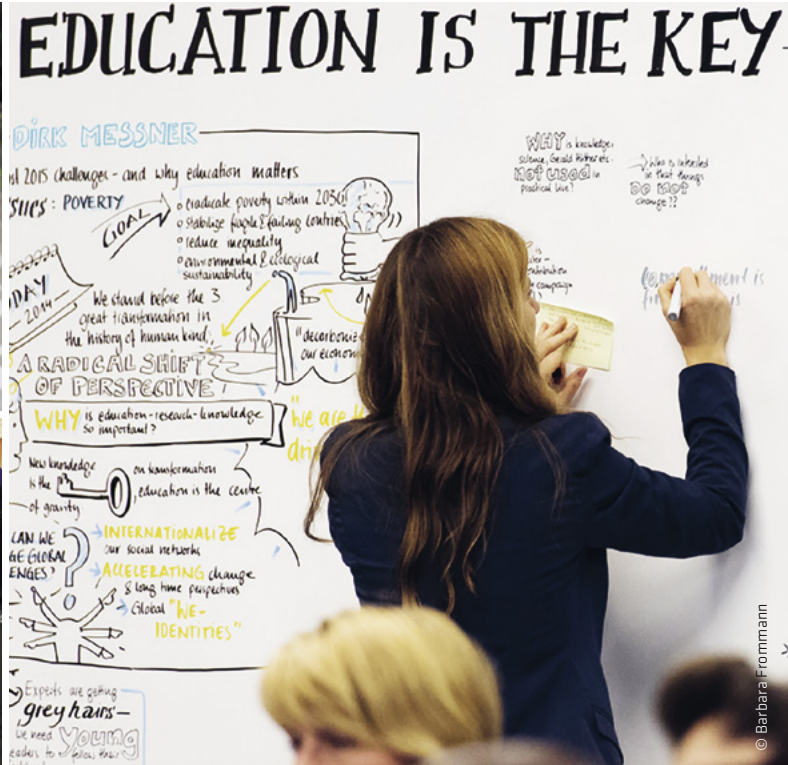 EDUCATION IS THE KEY
DIRK MESSNER
2015 challenges - and why education matters
POVERTY
GOAL
o eradicate poverty within 2030
o stabilize fragile & failing contries
o reduce inequality
o environmental & ecological
sustainability
DAY
2014
We stand before the 3
great transformation in
the history of human kind
"decarboniz
our econom
A RADICAL SHIFT
OF PERSPECTIVE
WHY is education-research-knowledge
so important?
"We are
dri
New knowledge
is the
of gravity
on transformation
, education is the centre
CAN WE
GE GLOBAL
ENGES?
→ INTERNATIONALIZE
our social networks
→ ACCELERATING change
& long time perspectives
→ Global "WE-
IDENTITIES"
Experts are getting
grey hairs -
we need young
to follow their
WHY is knowledge,
science, Gerald Hüther etc.
not used in
practical live?
→ Who is intrested
in that things
DO NOT
change??
is
campaign
is
© Barbara Frommann